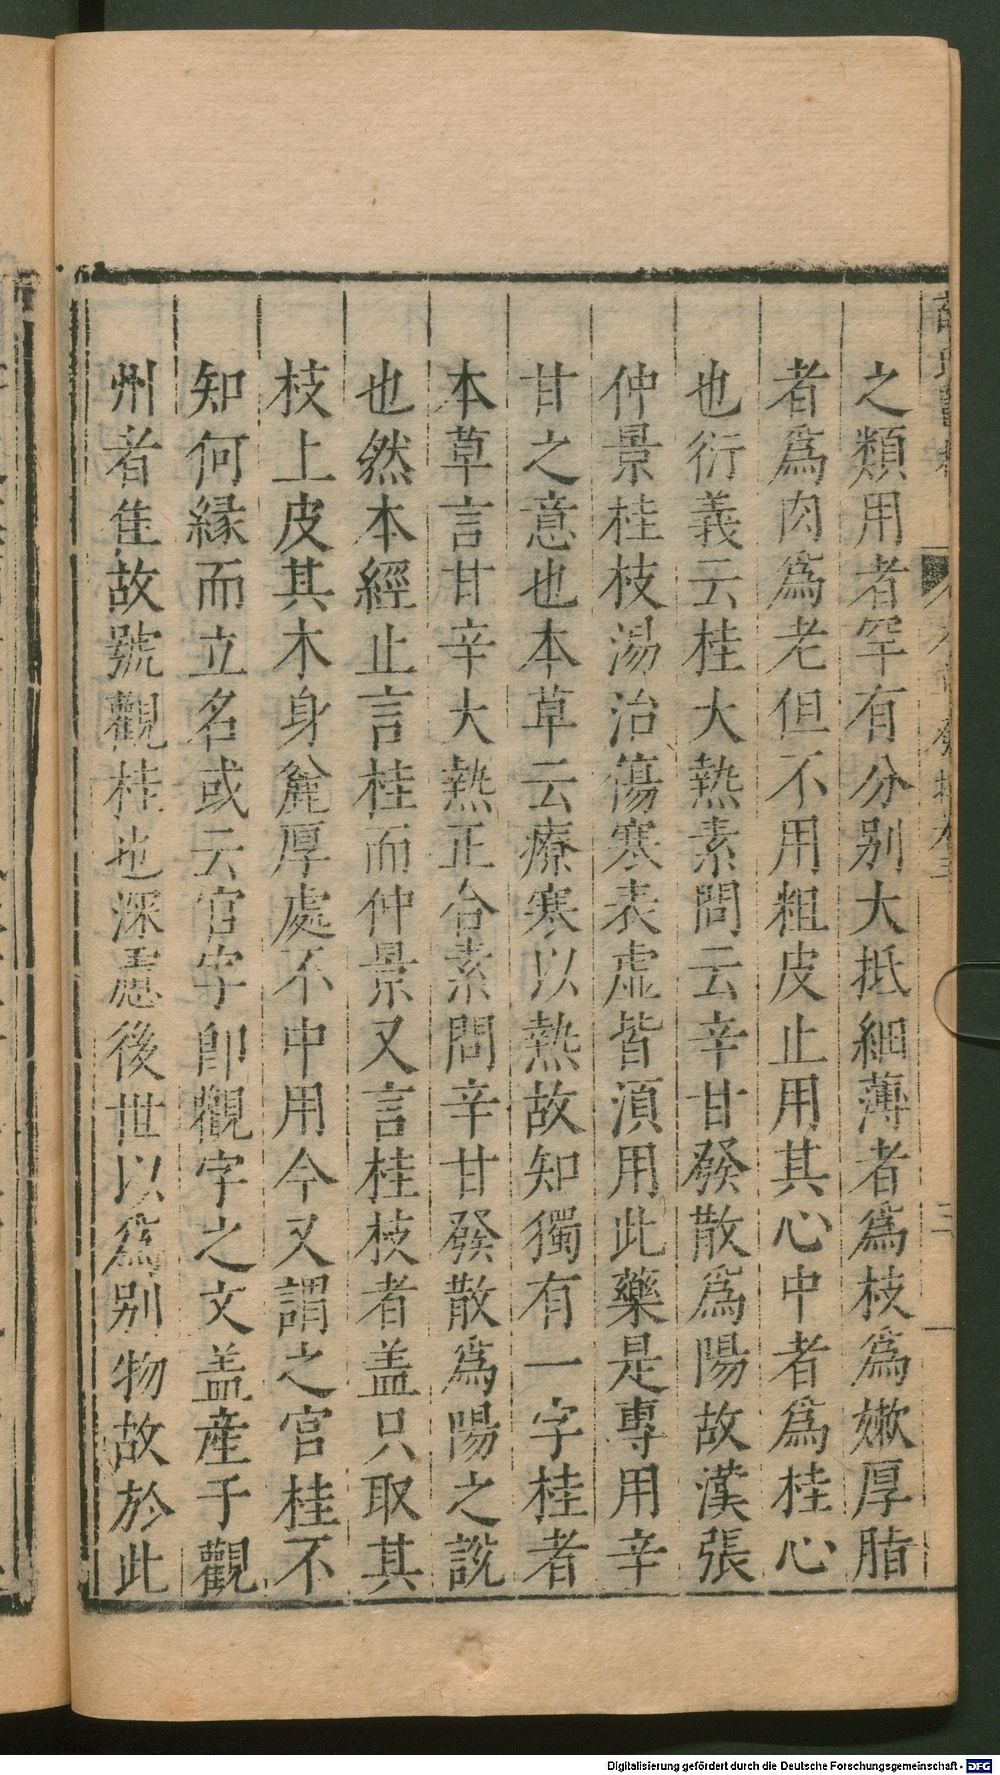 之類用者罕有分别大抵細薄者爲枝爲嫩厚脂
者爲肉爲老但不用粗皮止用其心中者爲桂心
也衍義云桂大熱素問云辛甘發散爲陽故漢張
仲景桂枝湯治傷寒表虛皆須用此藥是專用辛
甘之意也本草云療寒以熱故知獨有一字桂者
本草言甘辛大熱正合素問辛甘發散爲陽之說
也然本經止言桂而仲景又言桂枝者盖只取其
枝上皮其木身麄厚處不中用今又謂之官桂不
知何縁而立名或云官字即觀字之文盖産于觀
州者隹故號觀桂也深慮後世以爲别物故於此
Digitalisierung gefördert durch die Deutsche Forschungsgemeinschaft - DFG